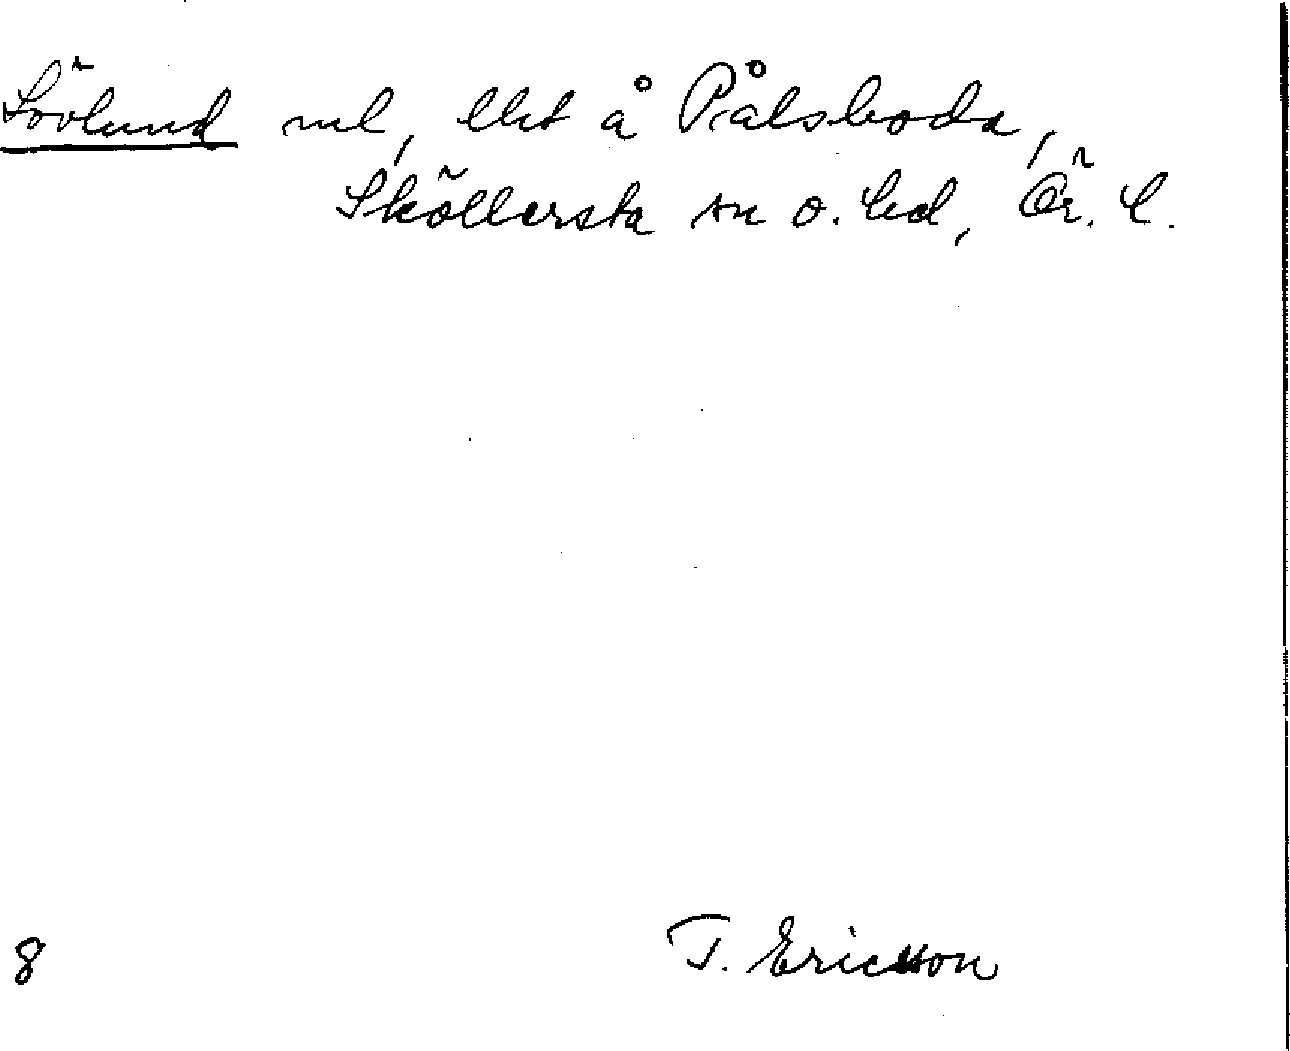 Lövlund , lht å Pålsboda,
Sköllersta sn o. hd, Ör. l.
8 T. Ericsson